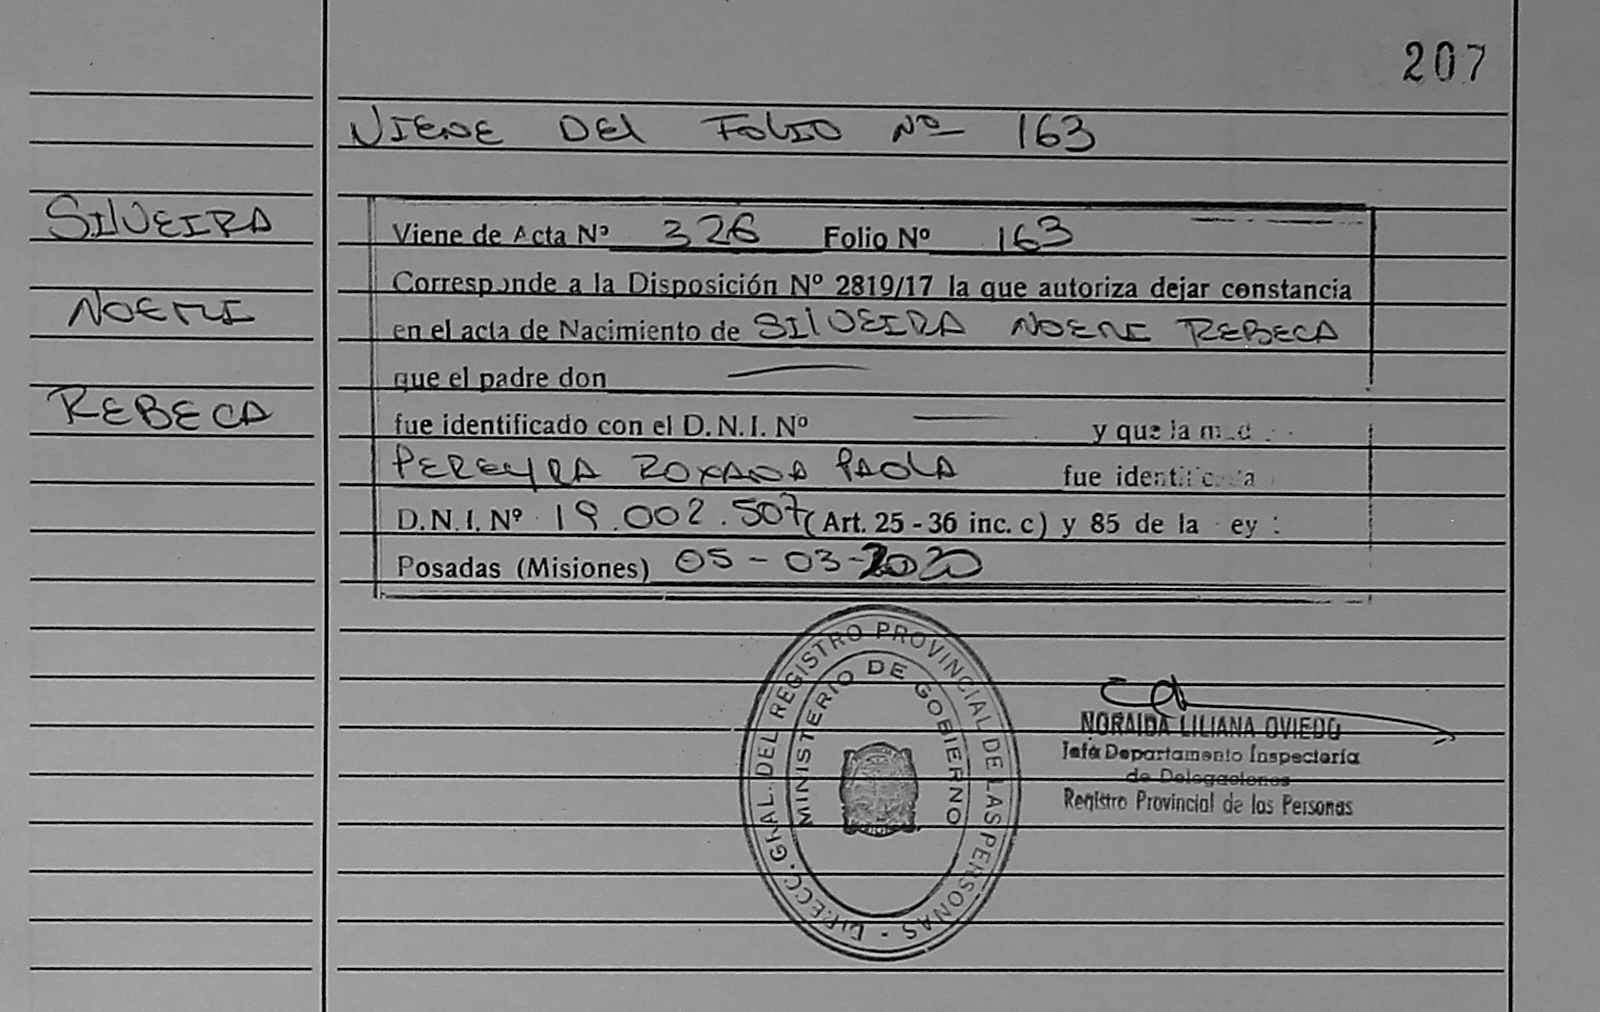 207
VIENE DEL FOLIO Nº 163
SILVEIRA
NOEMI
REBECA
Viene de Acta Nº 326 Folio Nº 163
Corresponde a la Disposición Nº 2819/17 la que autoriza dejar constancia
en el acta de Nacimiento de SILVEIRA NOEMI REBECA
que el padre don —
fue identificado con el D.N.I. Nº — y que la
PEREYRA ROXANA PAOLA fue identificada
D.N.I. Nº 19.002.507 (Art. 25 - 36 inc. c) y 85 de la
Posadas (Misiones) 05-03-2020
DIRECC. GRAL. DEL REGISTRO PROVINCIAL DE LAS PERSONAS -
MINISTERIO DE GOBIERNO
NORAIDA LILIANA OVIEDO
Jefa Departamento Inspectoría
de Delegaciones
Registro Provincial de las Personas